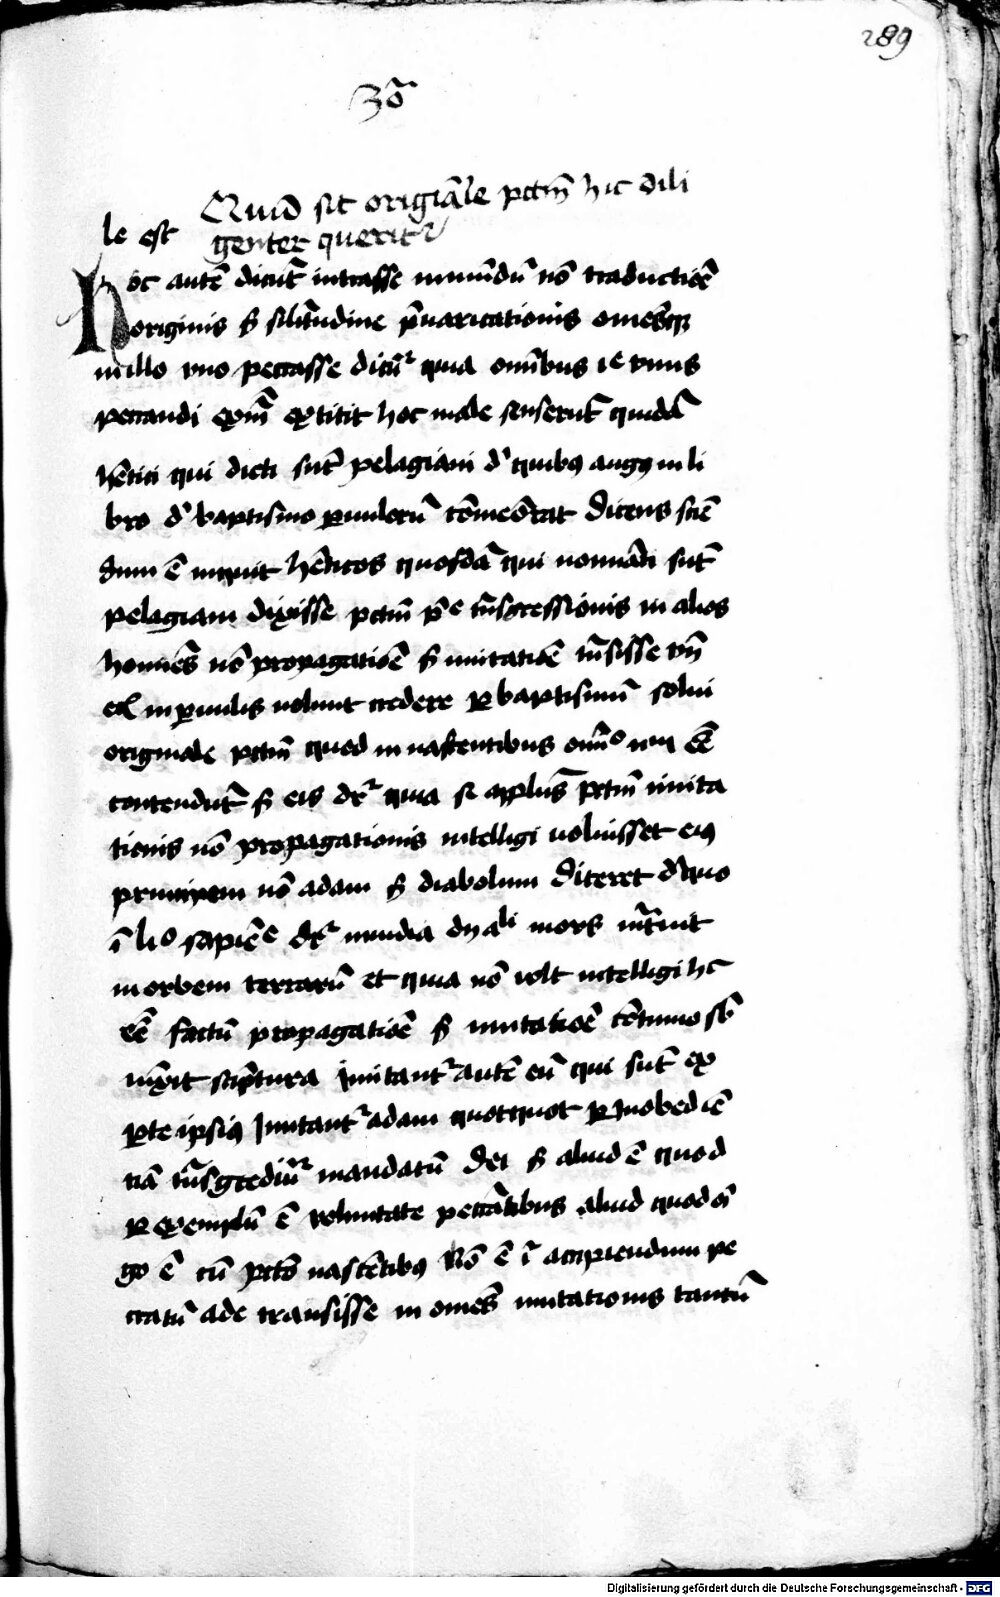 289
2ꝰ
Quid sit origīale pctm̄ hic dili
le est genter querit᷑
Hoc autē dicūt intrasse in mūdū nō traductiōē
originis s̄ silitudine p̄uaricationis om̄esqꝫ
in illo vno peccasse dicūt᷑ quia omībus ie vnus
peccandi exm̄ extitit hoc male senserūt quidā
hētici qui dicti sūt pelagiani d' quibꝯ augꝯ in li
bro d' baptismo ꝑuulorū cōmēorat dicens sciē
dum ē inquit hēticos quosdā qui nominati sūt
pelagiani dixisse pctm̄ pe t̄nsgressionis in alios
homīes nō propagatiōē s̄ imitatiōē t̄nsisse vn̄
in ꝑuulis nolunt credere ꝑ baptismū solui
originale pctm̄ quod in nascentibus om̄o ēē
contendūt s̄ eis dr̄ quia si apl̄us pctm̄ imita
tionis nō propagationis intelligi voluisset eiꝯ
principem nō adam s̄ diabolum diceret d' quo
ī lio sapiēe dr̄ inuidia dyali mors int̄uit
in orbem terrarū et quia nō volt intelligi hc
eē factū propagatiōē s̄ imitatiōē cōtinuo sb
iūxit scriptura Imitant᷑ autē eū qui sūt ex
ꝑte ipsiꝯ Imitant᷑ adam quotquot ꝑ inobediē
tiā t̄nsgrediūt᷑ mandatū dei s̄ aliud ē quod
ꝑ exemplū ē voluntate peccātibus aliud quod ori
go ē cū pctō nascētibꝯ Nō ē ī accipiendum pe
ccatū ade transisse in omēs imitationis tantū
Digitalisierung gefördert durch die Deutsche Forschungsgemeinschaft - DFG